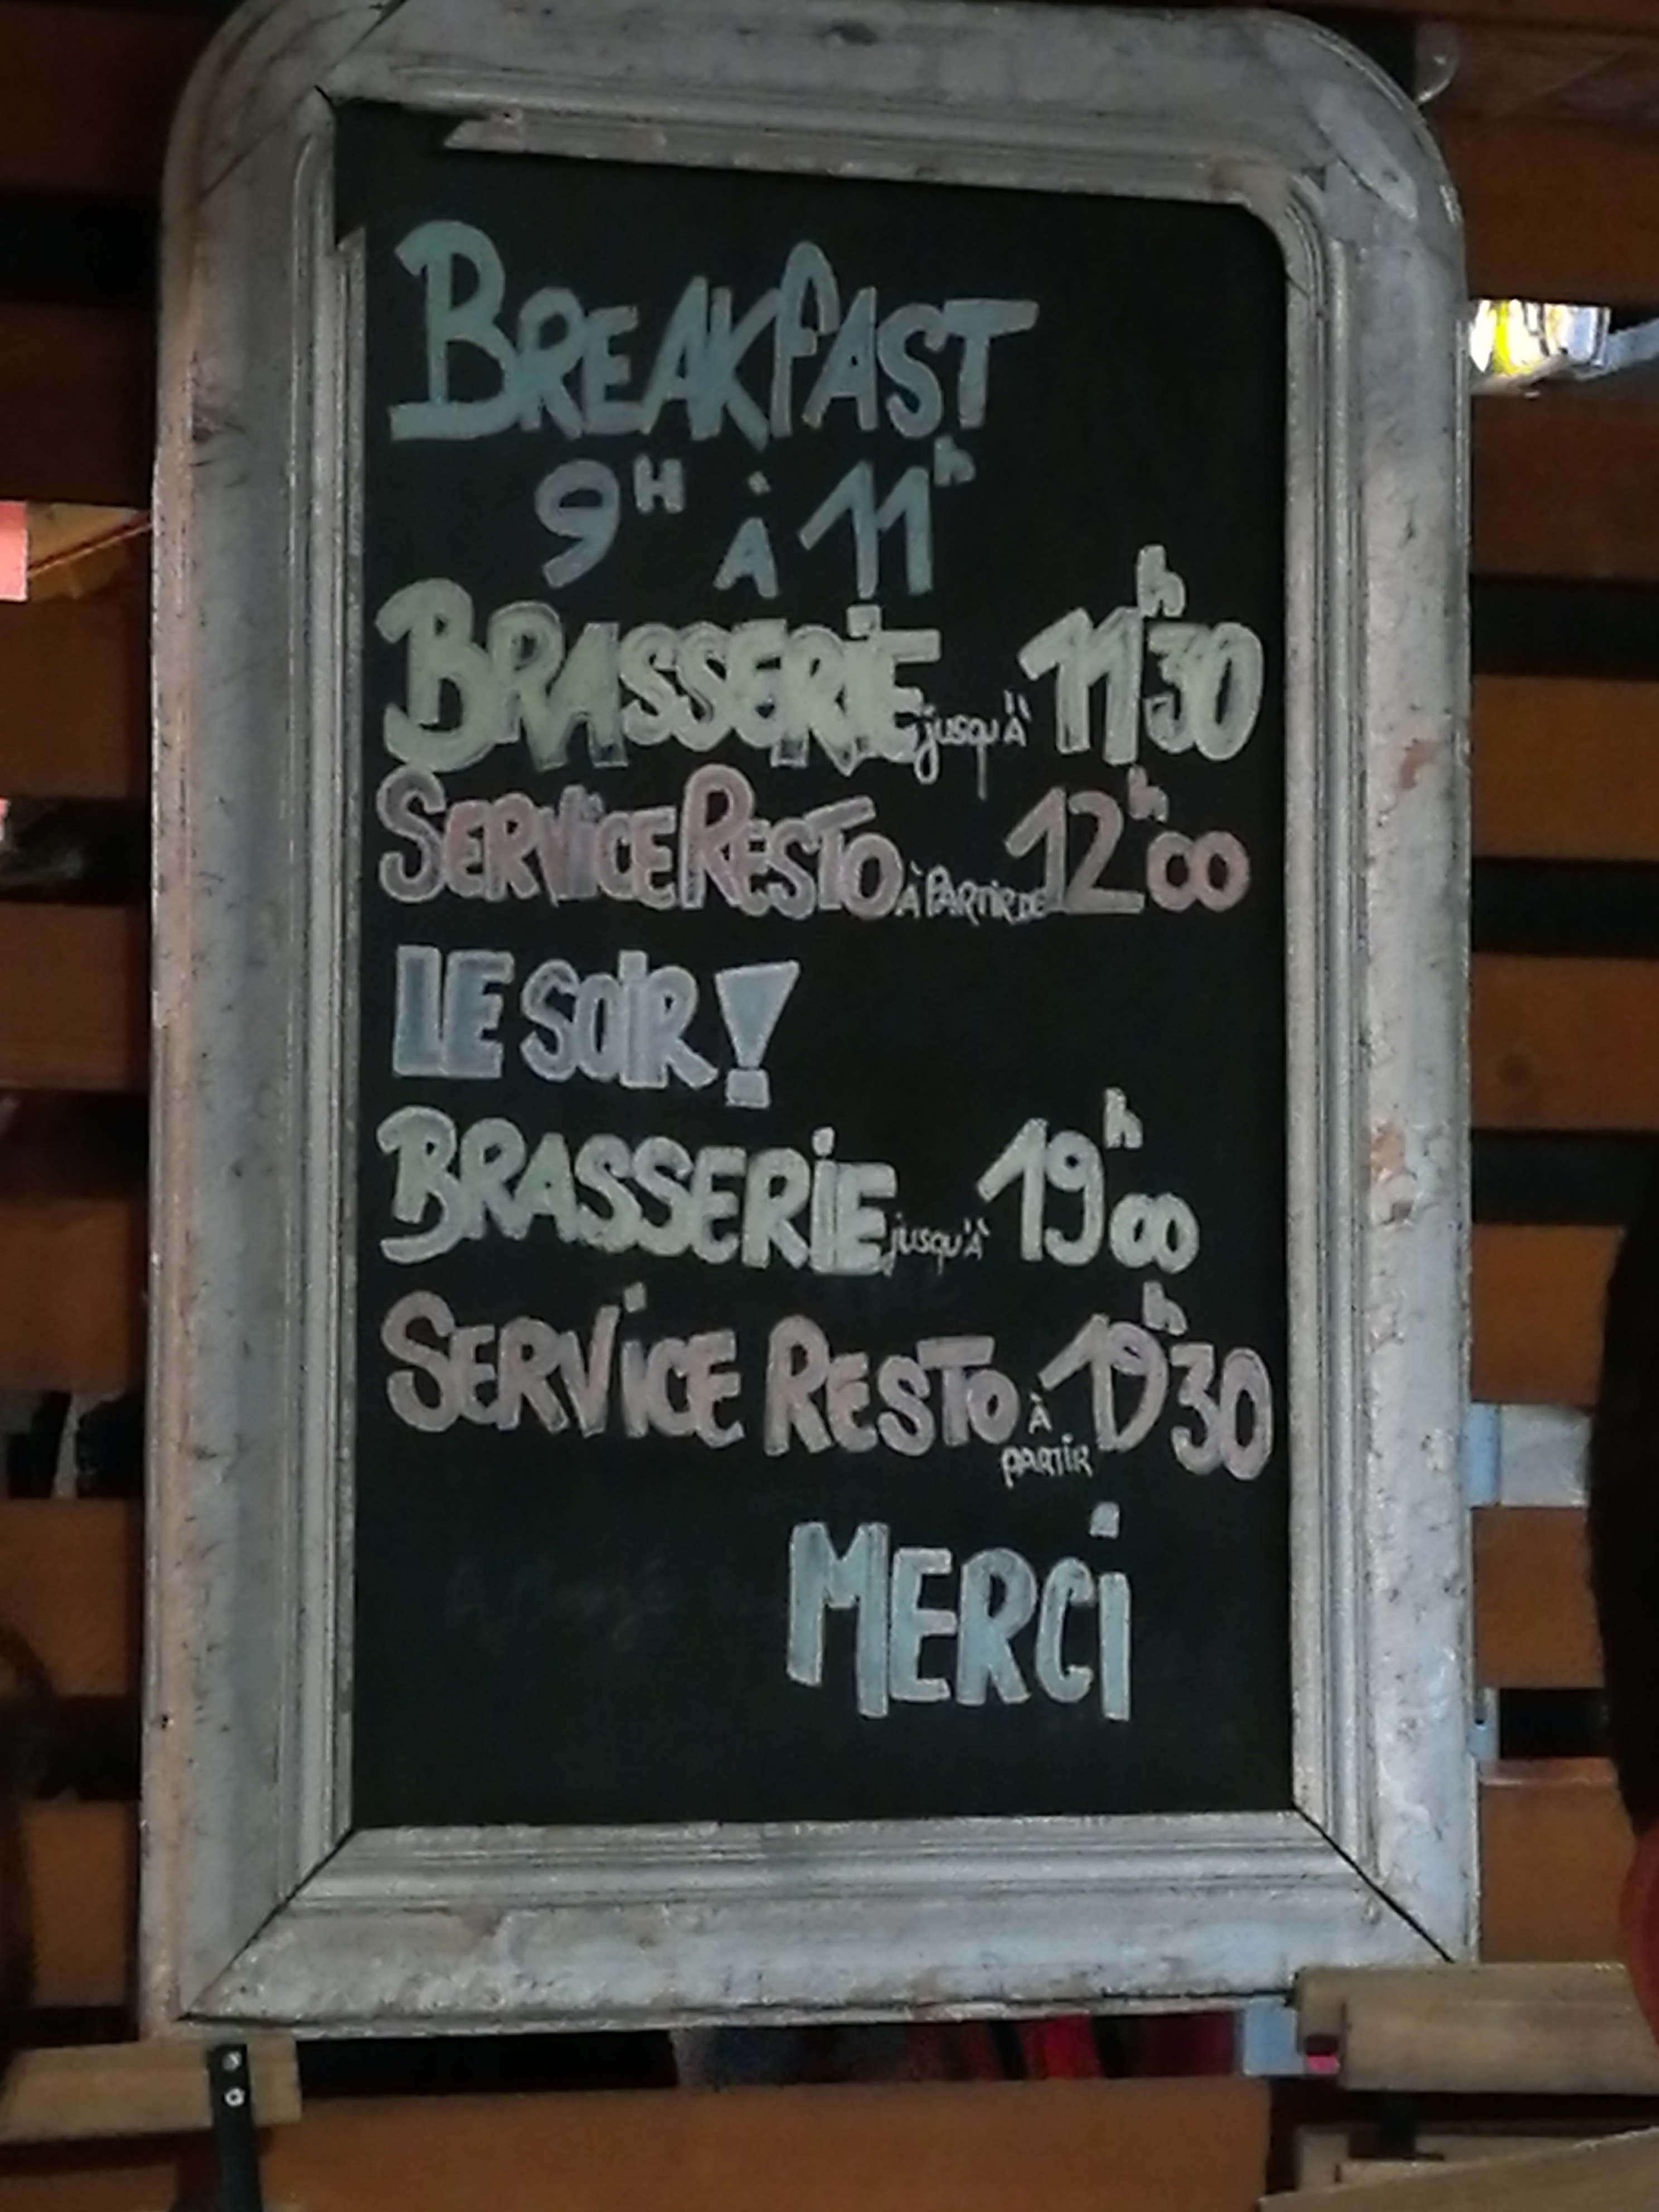 BREAKFAST
9H À 11h
BRASSERIE jusqu'à 11h30
SERVICE RESTO à PARTIR DE 12h00
LE SOIR !
BRASSERIE jusqu'à 19h00
SERVICE RESTO À PARTIR 19h30
MERCI